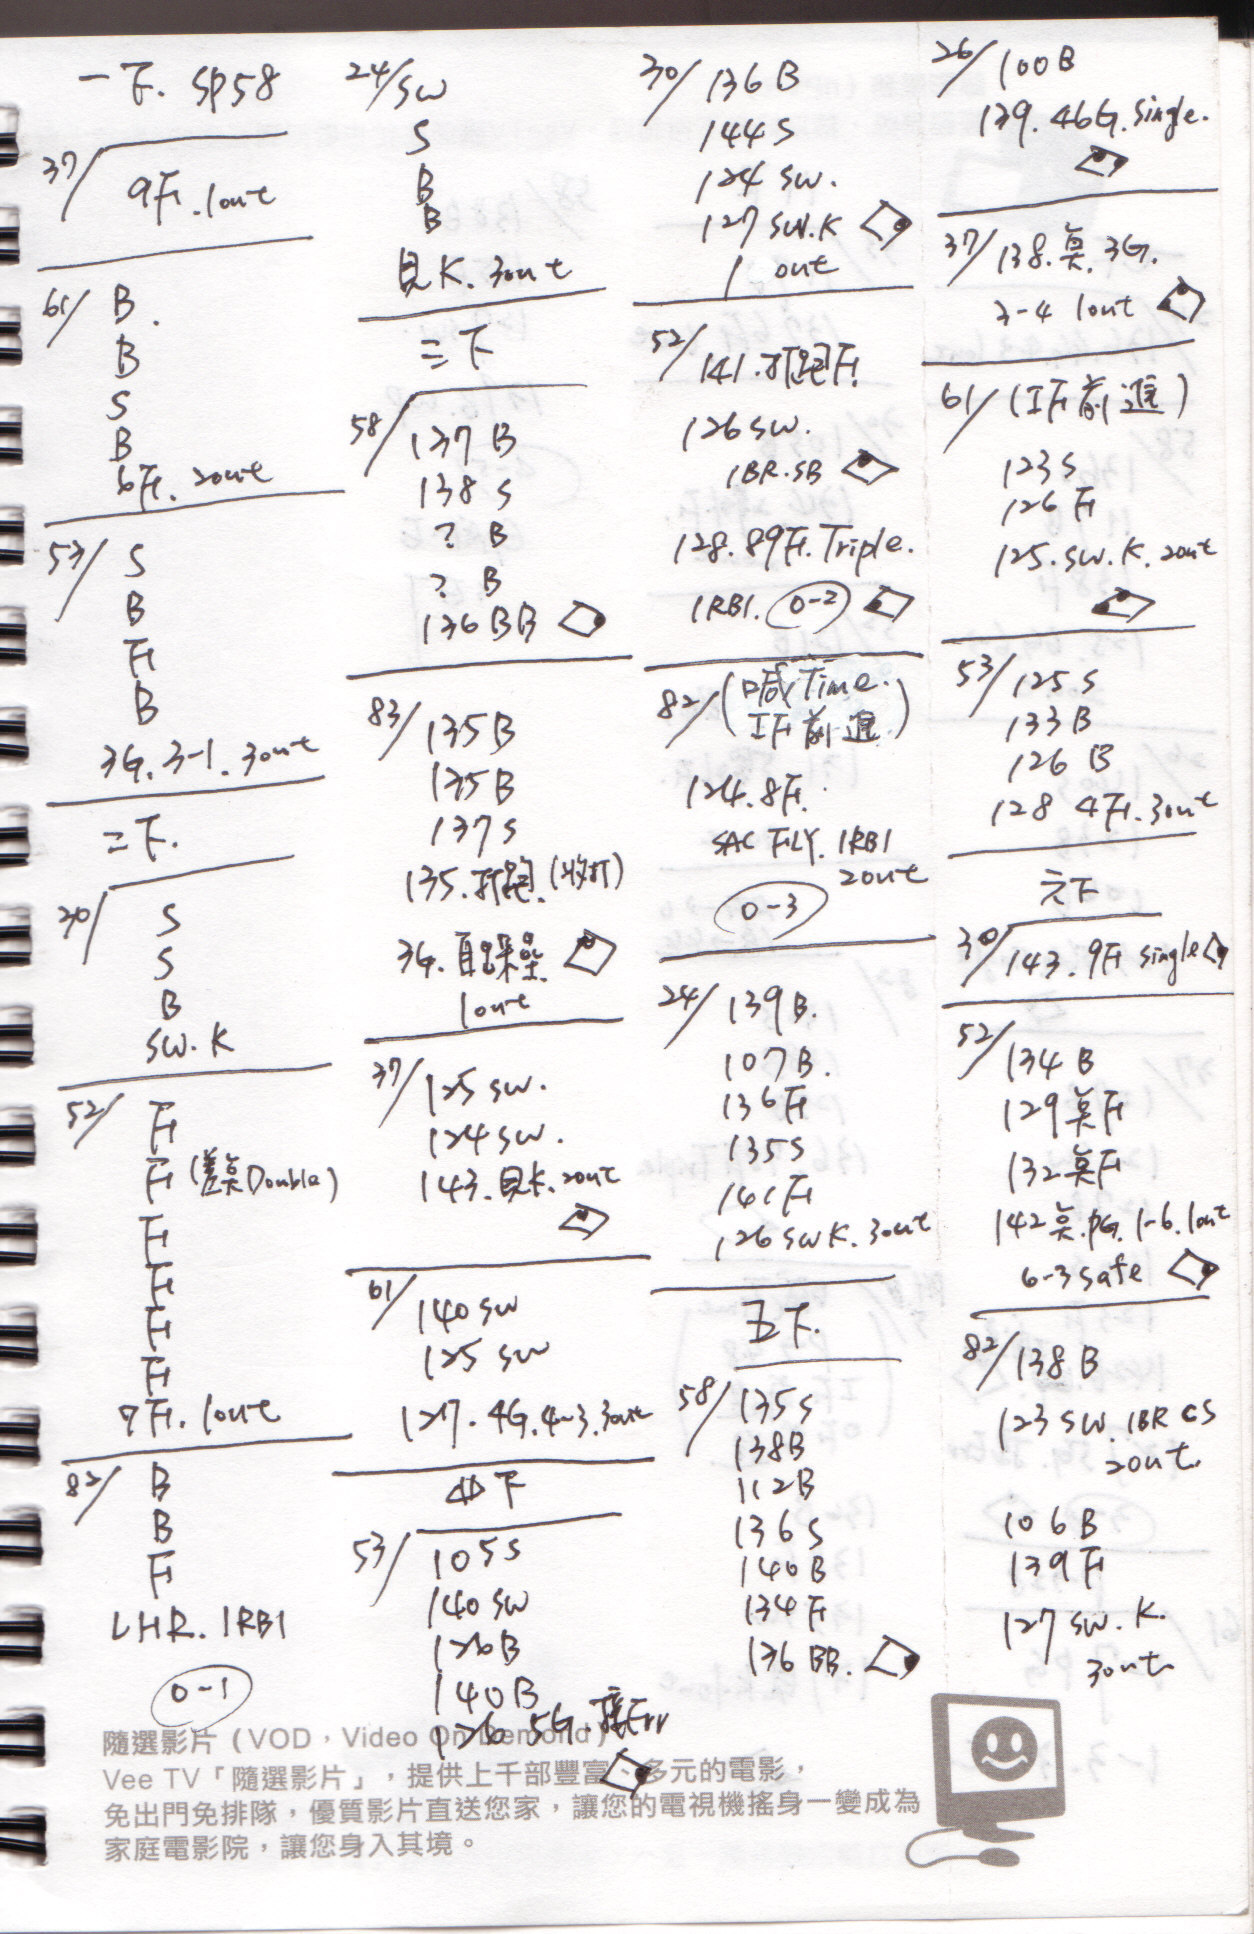 一下. SP58
37/
9F. 1out
61/ B.
B
S
B
6F. 2out
53/ S
B
F
B
3G. 3-1. 3out
二下.
30/ S
S
B
SW. K
52/ F
F (差點Double)
F
F
F
F
7F. 1out
82/ B
B
F
LHR. 1RBI
0-1
24/ SW
S
B
B
見K. 3out
三下
58/ 137 B
138 S
? B
? B
136 BB
83/ 135 B
135 B
137 S
135. 打跑. (收打)
3G. 自踩壘.
1out
37/ 125 SW.
124 SW.
143. 見K. 2out
61/ 140 SW
125 SW
127. 4G. 4-3. 3out
四下
53/ 105 S
140 SW
126 B
140 B
126 5G. 接Err
30/ 136 B
144 S
124 SW.
127 SW. K
1 out
52/ 141. 打跑F.
126 SW.
1BR. SB
128. 89F. Triple.
1RBI. 0-2
82/ (喊Time.
IF前進)
124. 8F.
SAC FLY. 1RBI
2out
0-3
24/ 139 B.
107 B.
136 F
135 S
141 F
126 SW K. 3out
五下.
58/ 135 S
138 B
112 B
136 S
140 B
134 F
136 BB.
26/ 100 B
139. 46G. single.
37/ 138. 莫. 3G.
3-4 1out
61/ (IF前進)
123 S
126 F
125. SW. K. 2out
53/ 125 S
133 B
126 B
128 4F. 3out
六下
30/ 143. 9F single
52/ 134 B
129 莫F
132 莫F
142 莫. PG. 1-6. 1out
6-3 safe
82/ 138 B
123 SW. 1BR CS
2out.
106 B
139 F
127 SW. K.
3out.
隨選影片(VOD,Video On Demond)
Vee TV「隨選影片」,提供上千部豐富、多元的電影,
免出門免排隊,優質影片直送您家,讓您的電視機搖身一變成為
家庭電影院,讓您身入其境。